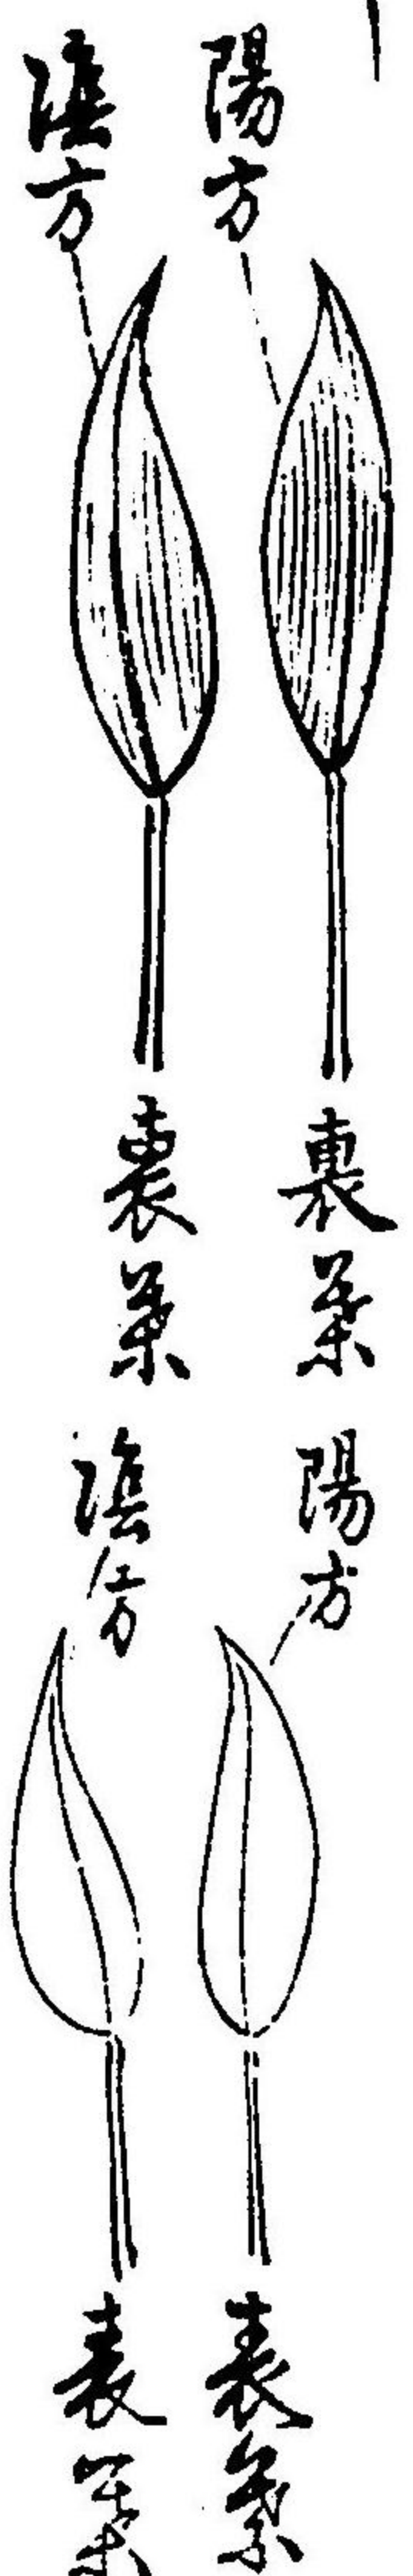 陽方
陰方
裏葉
裏葉
陽方
陰方
表葉
表葉